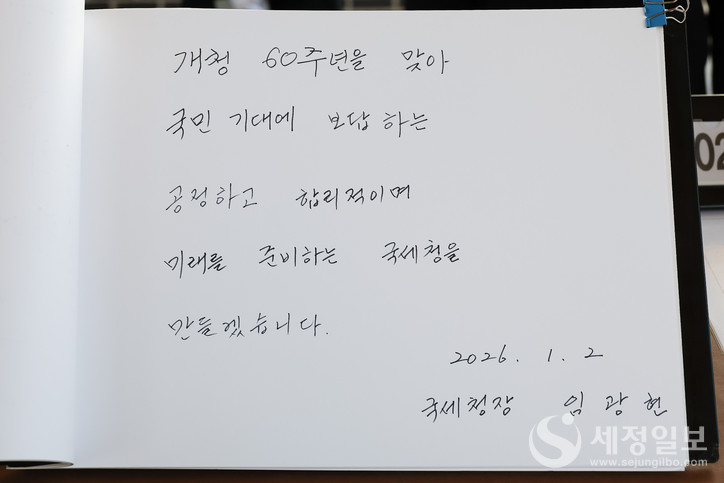 개청 60주년을 맞아
국민 기대에 보답하는
공정하고 합리적이며
미래를 준비하는 국세청을
만들겠습니다.
2026. 1. 2
국세청장 임광현
02
세정일보
www.sejungilbo.com